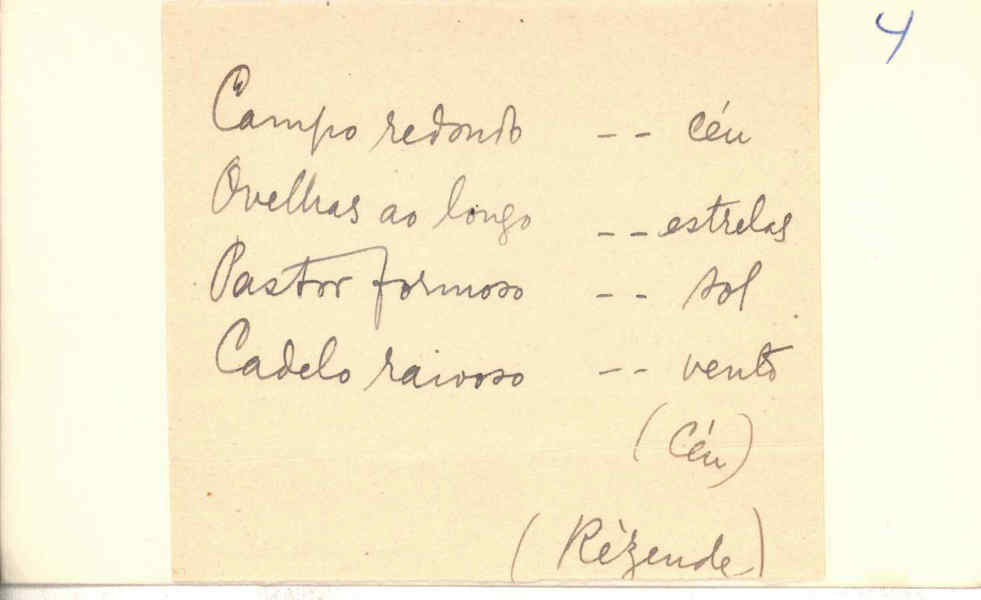 4
Campo redondo -- céu
Ovelhas ao longo -- estrelas
Pastor formoso -- sol
Cadelo raivoso -- vento
(Céu)
(Rèzende)